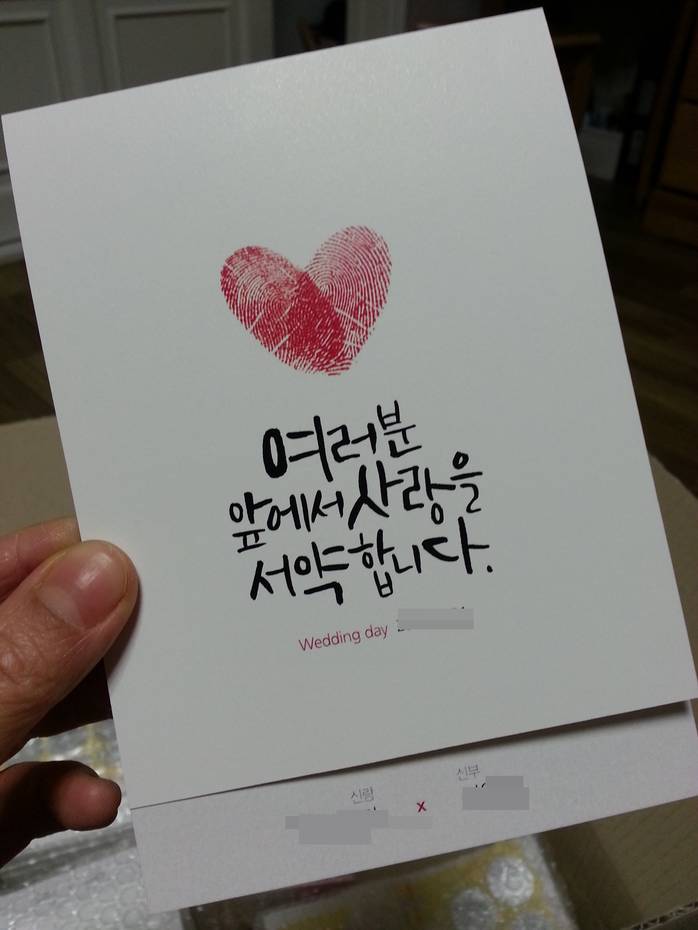 여러분
앞에서 사랑을
서약합니다.
Wedding day
신랑
신부
x